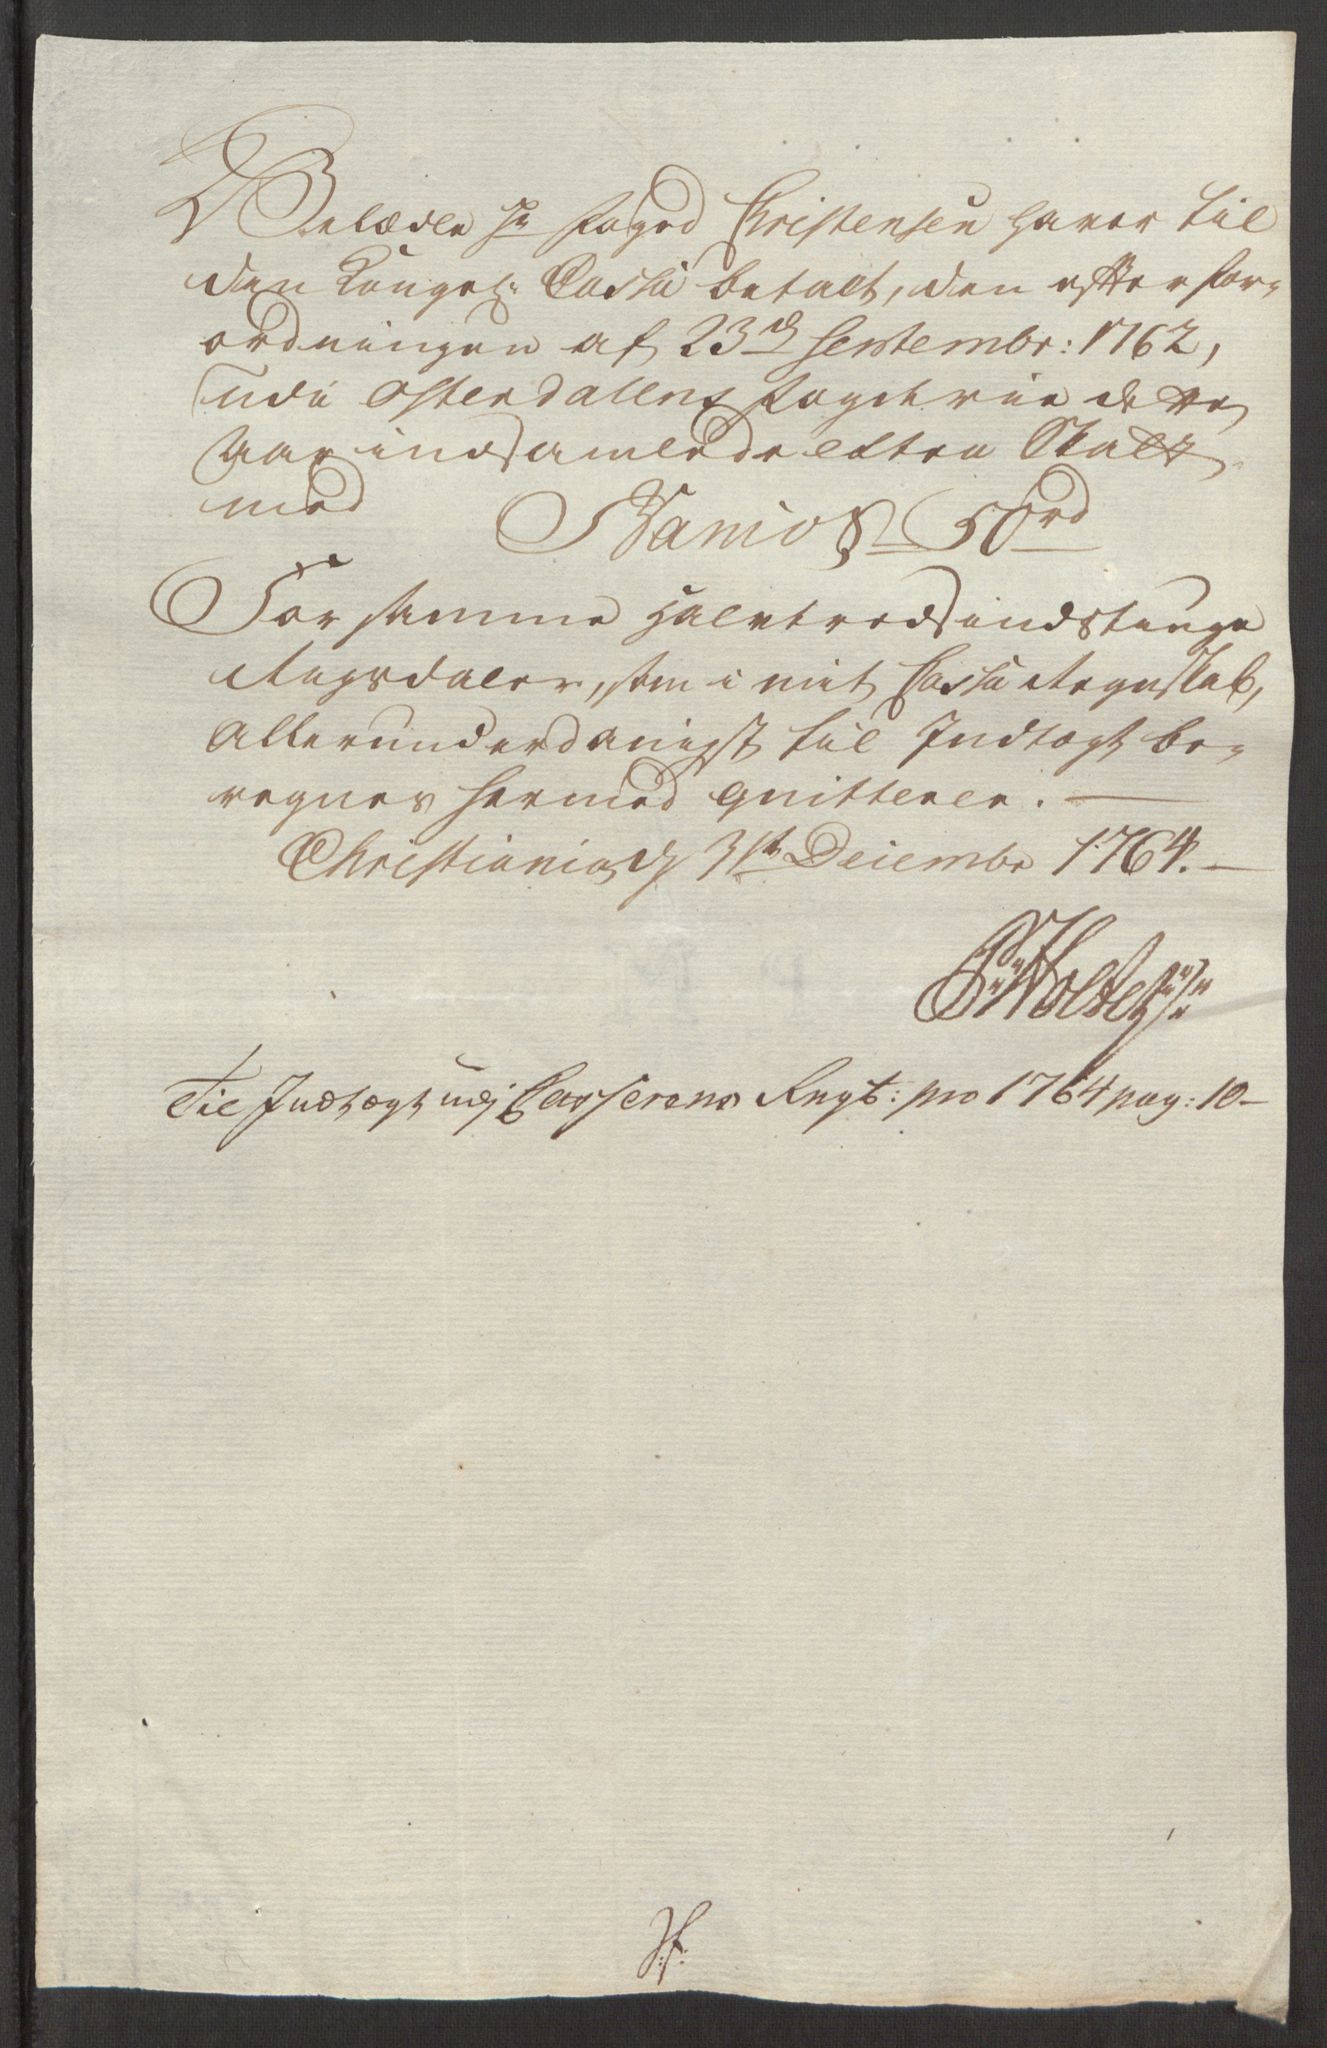 Velædle Hr Foged Christensen haver til
den Kongel: Cassa betalt, den efter for-
ordningen af 23de Septembr: 1762,
udi Østerdalens Fogderie dette
Aar indsamlede Extra Skatt
med
50 rd
For samme Halvtredsindstiuge
Rigsdaler, som i mit Cassa Regnskab,
Allerunderdanigst til Indtægt be-
regnes hermed qvitterer.
Christiania d 31te Decembr 1764.
Holte
Til Indtægt udj Casserens Regt: pro 1764 pag: 10